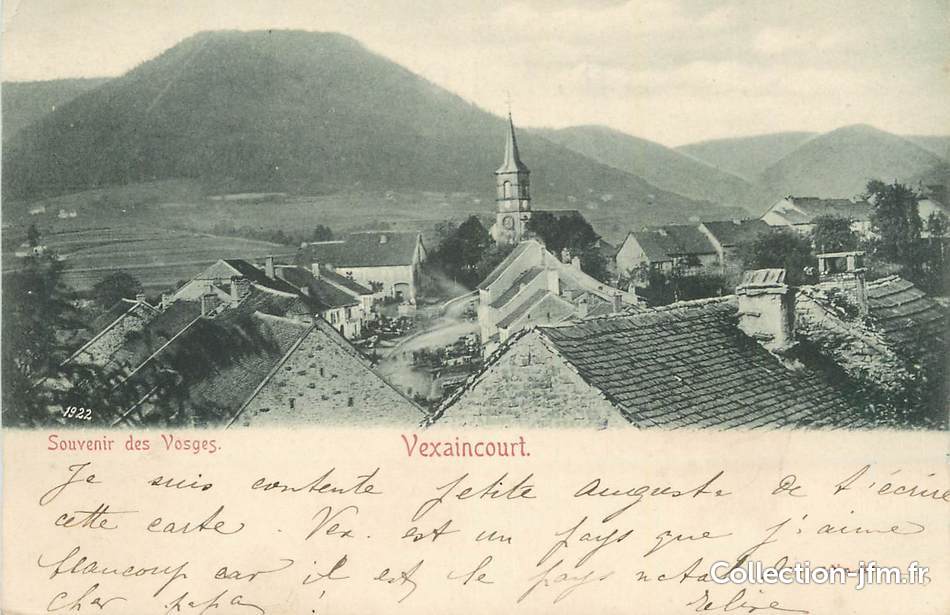 1922
Souvenir des Vosges. Vexaincourt.
Je suis contente petite Augusta de t'écrire
cette carte. Vex. est un pays que j'aime
beaucoup car il est le pays natal
cher papa! Relire
Collection-jfm.fr